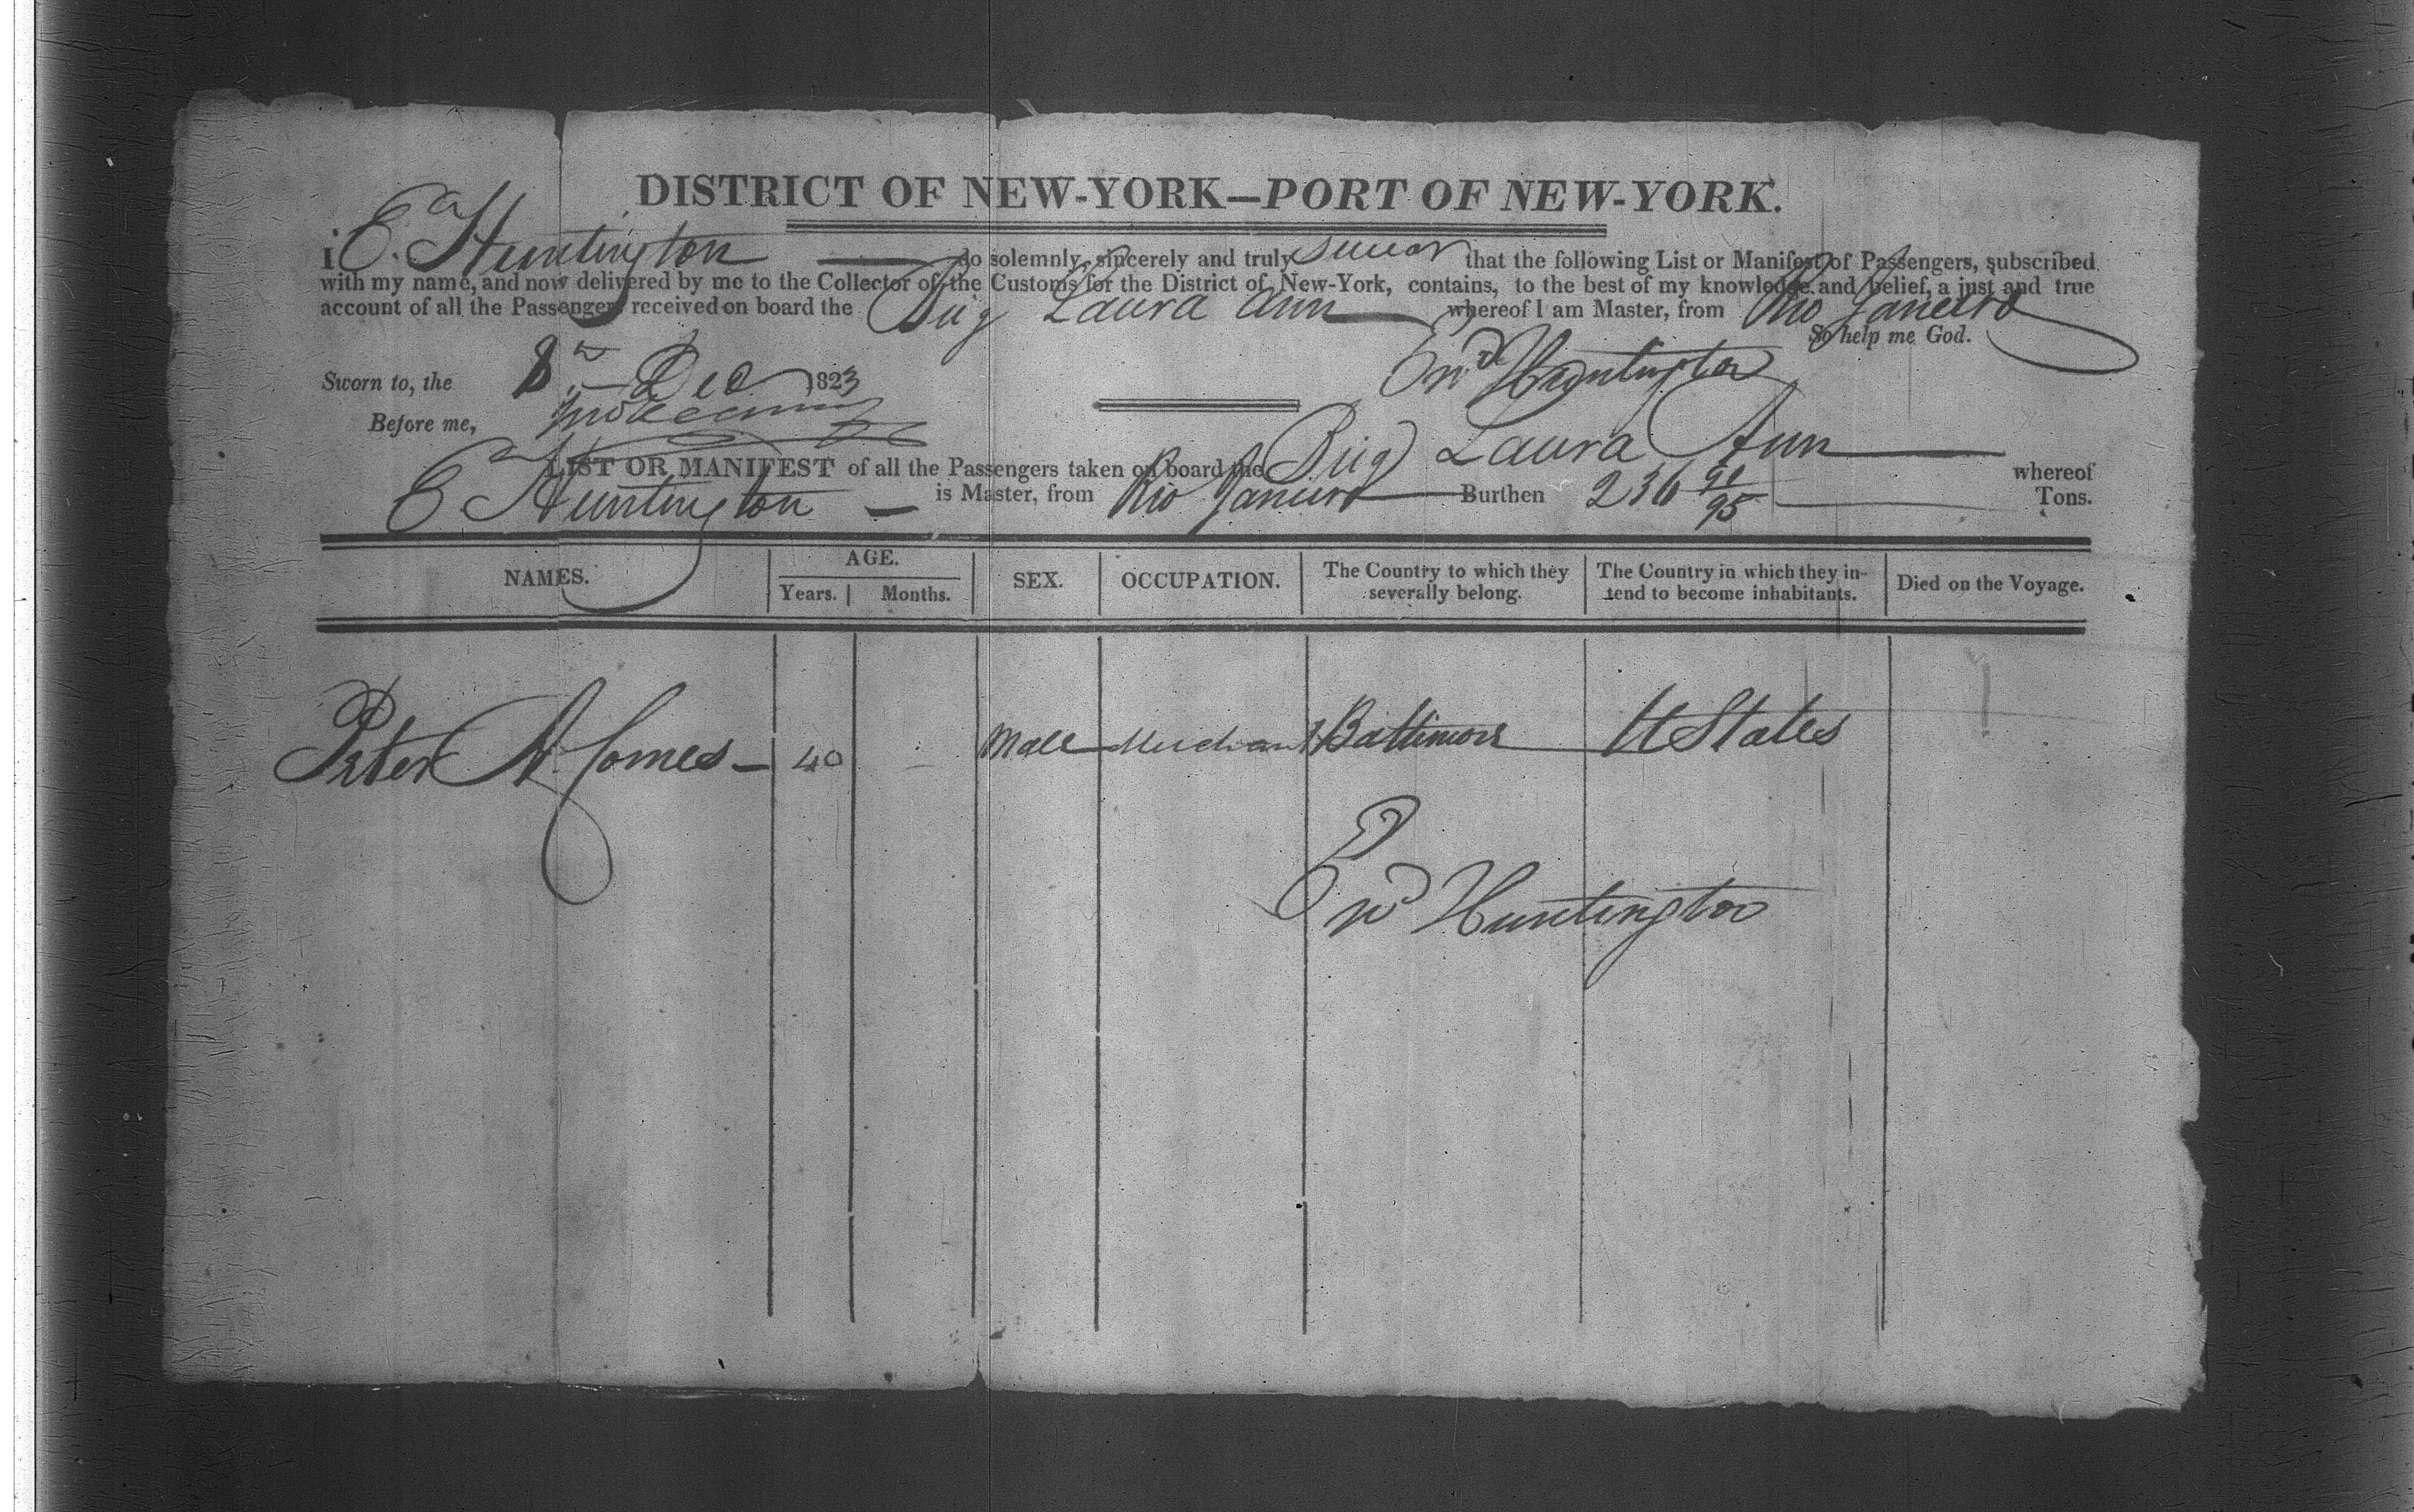 DISTRICT OF NEW-YORK—PORT OF NEW-YORK.
i E. Huntington do solemnly, sincerely and truly swear that the following List or Manifest of Passengers, subscribed
with my name, and now delivered by me to the Collector of the Customs for the District of New-York, contains, to the best of my knowledge and belief, a just and true
account of all the Passengers received on board the Brig Laura Ann whereof I am Master, from Rio Janeiro
So help me God.
Sworn to, the 8th Dec 1823 End Huntington
Before me,
LIST OR MANIFEST of all the Passengers taken on board the Brig Laura Ann whereof
E Huntington is Master, from Rio Janeiro Burthen 236 91/95 Tons.
NAMES. AGE. Years. Months. SEX. OCCUPATION. The Country to which they severally belong. The Country in which they intend to become inhabitants. Died on the Voyage.
Peter A. Comes 40 Male Merchant Baltimore U States
End Huntington